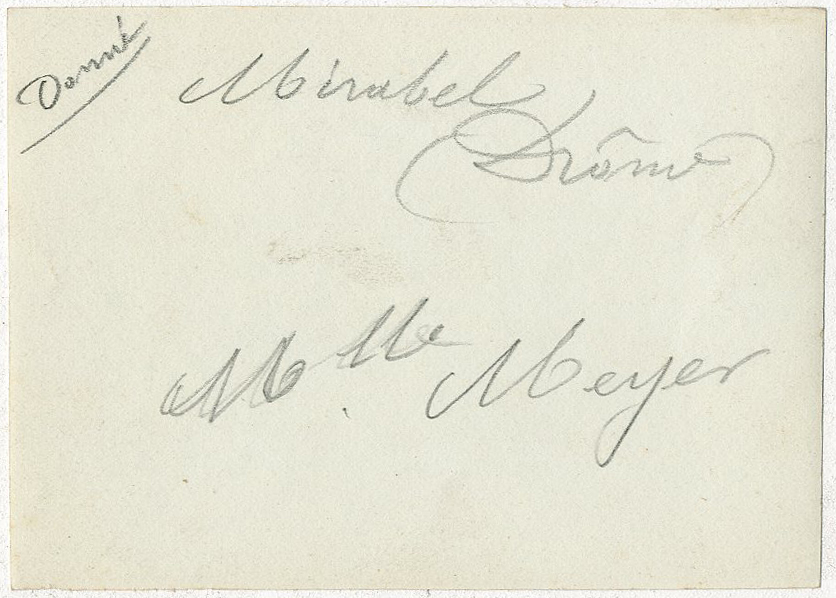 Donné
Mirabel
(Drôme)
Mlle Meyer